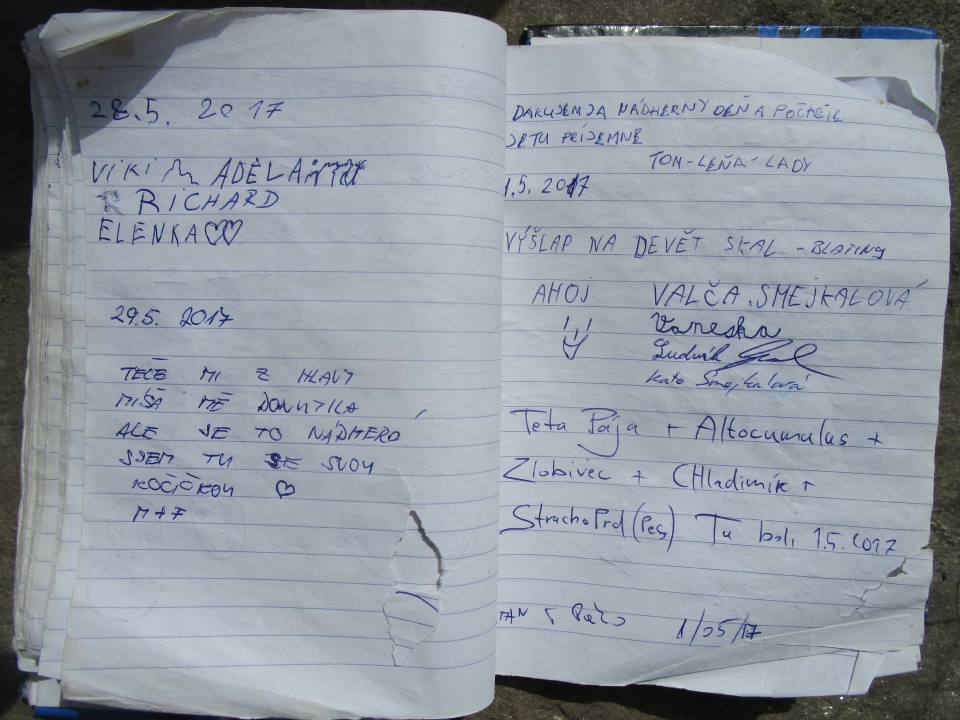 28.5. 2017
VIKI ADÉLA
RICHARD
ELENKA
29.5. 2017
TEČE MI Z HLAVY
MIŠA MĚ DONUTILA
ALE JE TO NÁDHERO
JSEM TU SE SVOU
KOČIČKOU
M+F
ĎAKUJEM ZA NÁDHERNÝ DEŇ A POČASIE
JE TU PRÍJEMNE
TOM-LEŇA-LADY
1.5. 2017
VÝŠLAP NA DEVĚT SKAL - BLATINY
AHOJ VALČA SMEJKALOVÁ
Vaneska
Ludvík
Kata Smejkalová
Teta Pája + Altocumulus +
Zlobivec + CHladimík +
StrachoPrd (Pes) Tu boli 1.5.2017
1/05/17